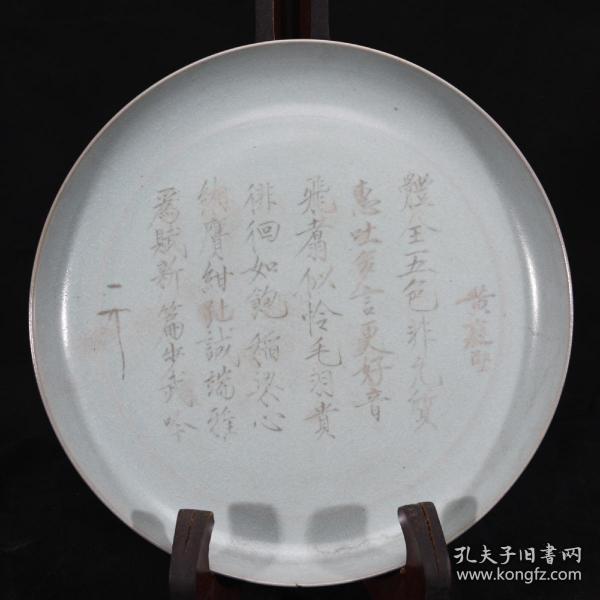 黄庭堅
體全五色非凡質
惠吐多言更好音
飛翥似怜毛羽貴
徘徊如飽稻粱心
緗膺紺趾誠端雅
爲賦新篇步武吟
孔夫子旧書网
www.kongfz.com